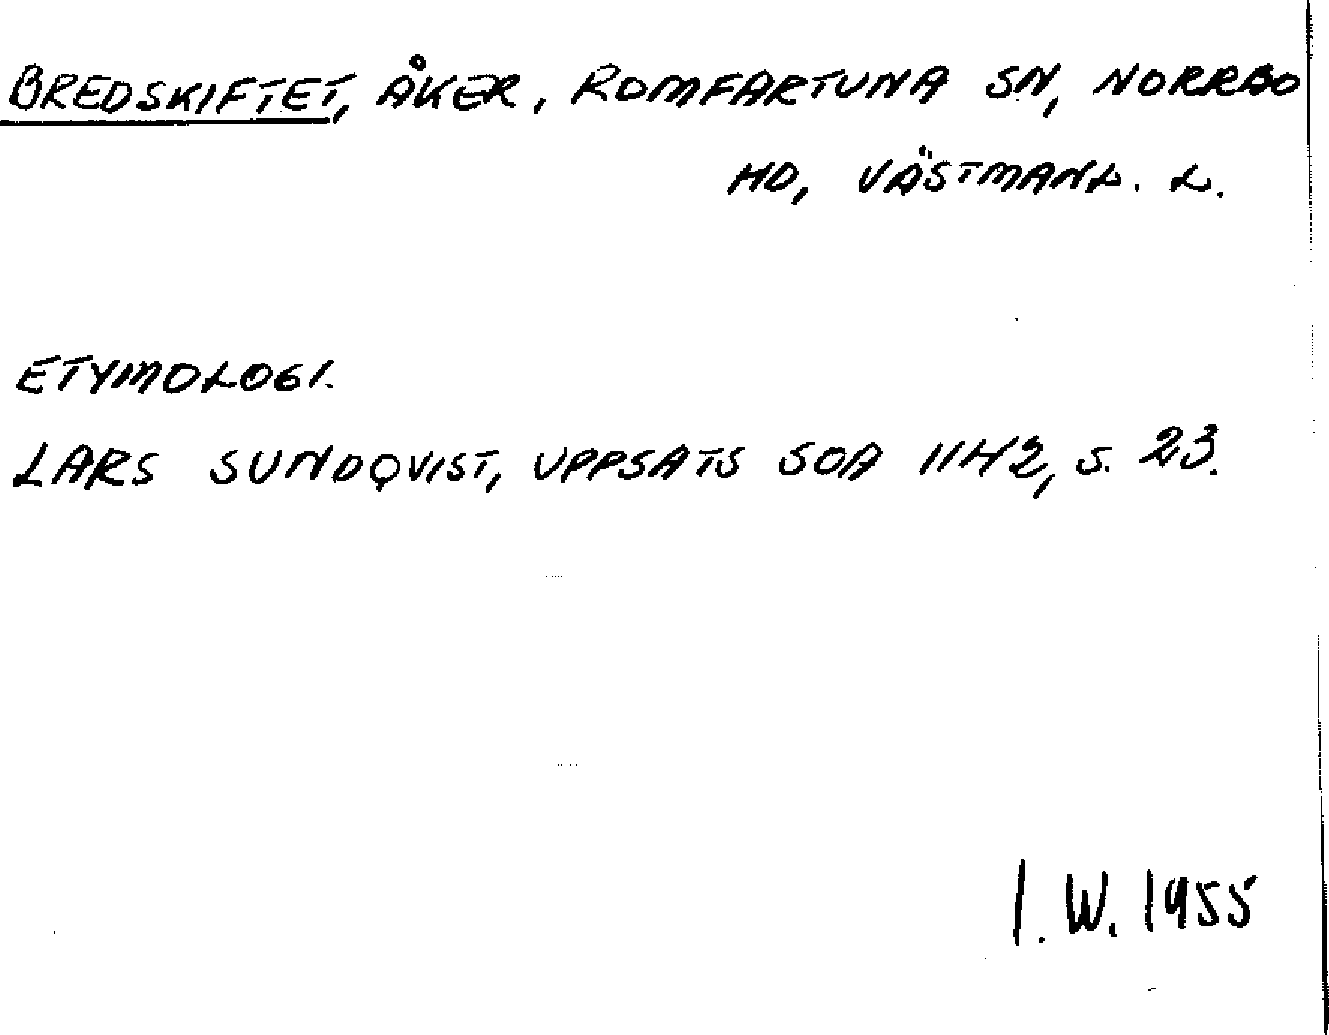 BREDSKIFTET, ÅKER, ROMFARTUNA SN, NORRBO
HD, VÄSTMANL. L.
ETYMOLOGI.
LARS SUNDQVIST, UPPSATS SOA 1142, S. 23.
I. W. 1955